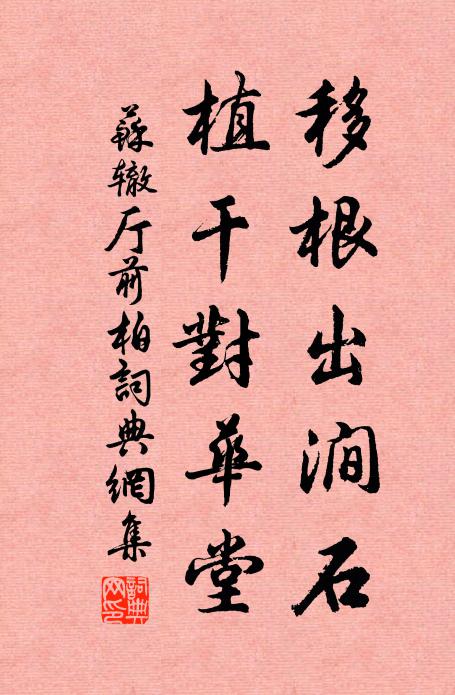 移根出澗石
植干對華堂
蘇辙厅前柏詞典網集
詞典網印